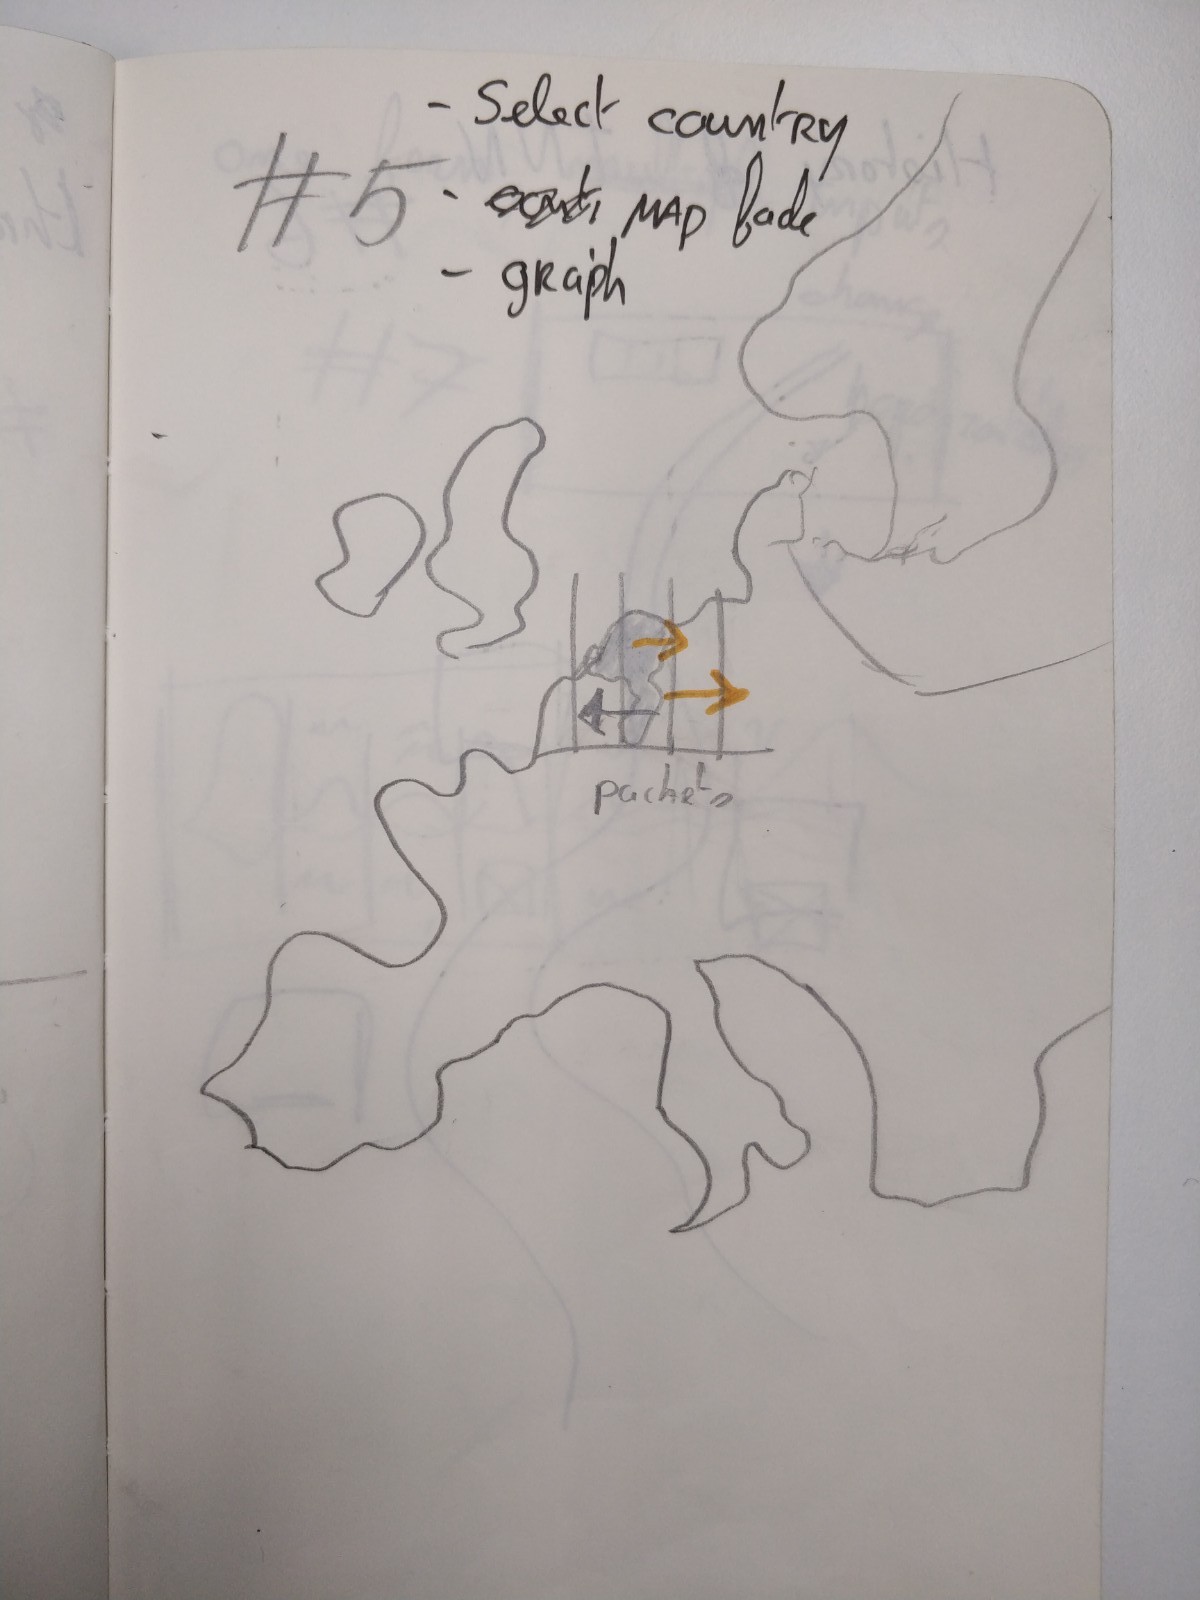 - Select country
#5 - MAP fade
- graph
packets